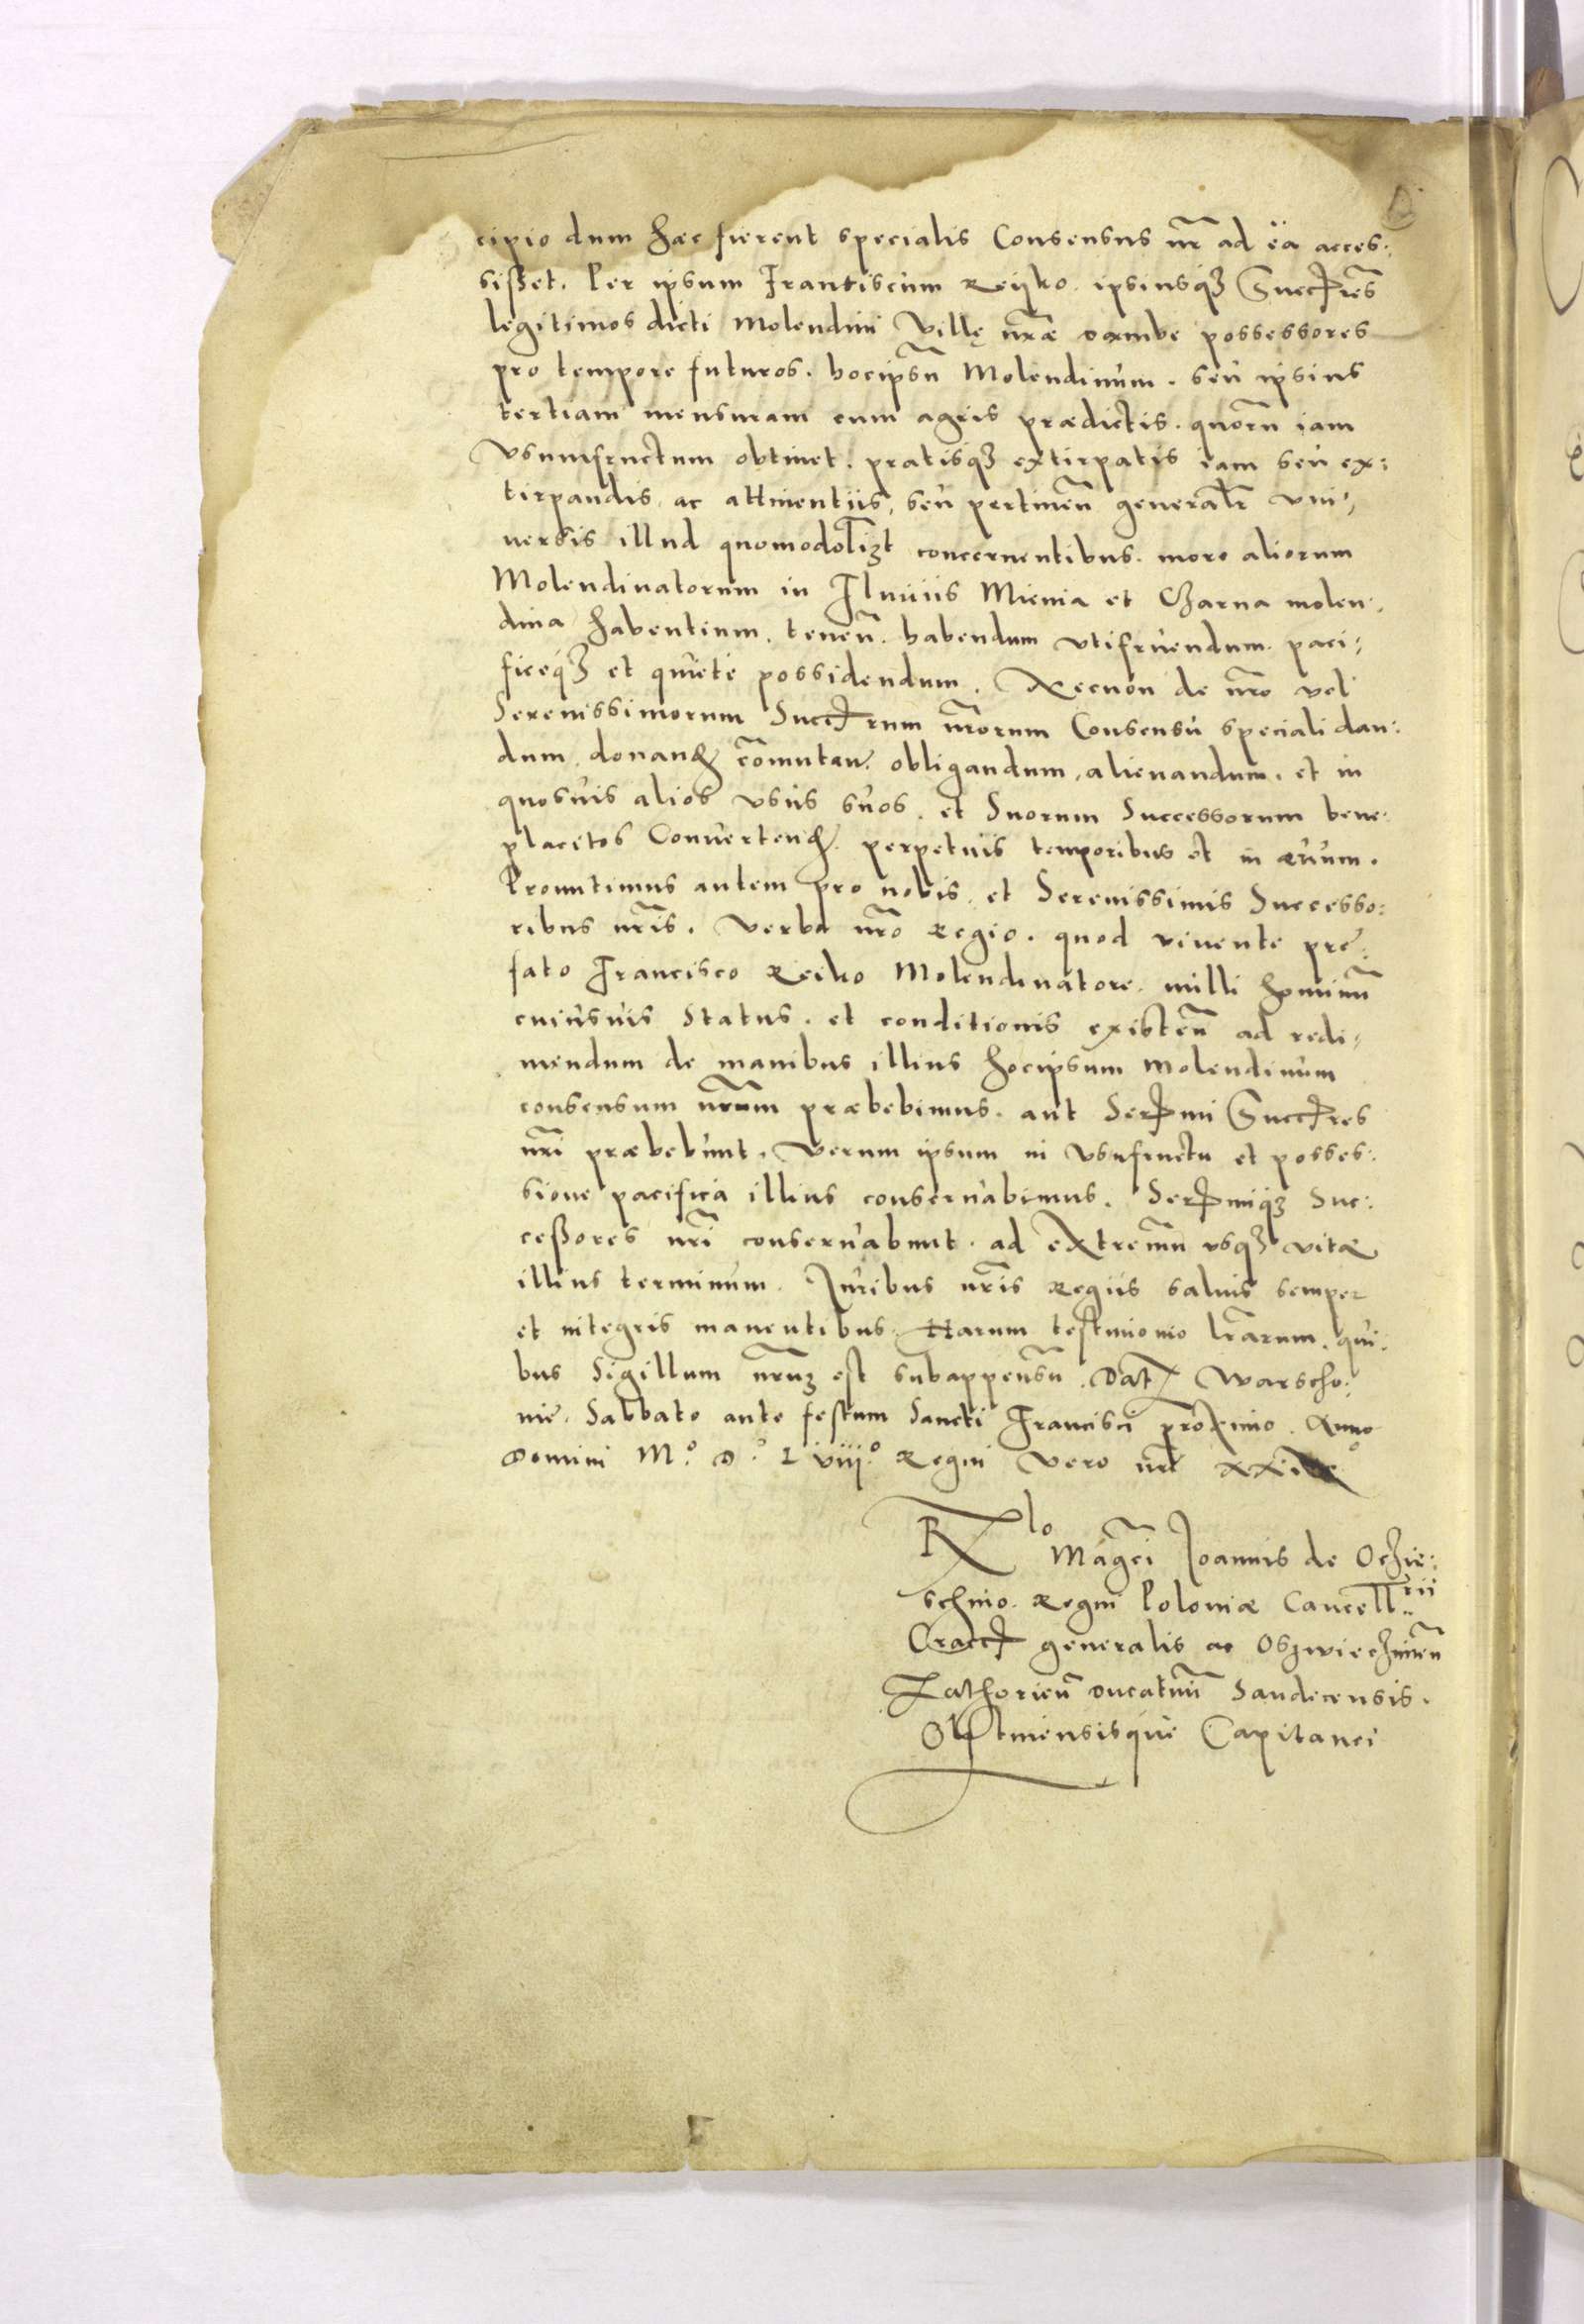 cipio dum hæc fierent specialis Consensus nr̃ ad ëa acces:
sißet. Per ipsum Frantiscum Reijko. ipsiusq3 Succ̃res
legitimos dicti Molendini Villę nr̃æ Dambe possessores
pro tempore futuros. hocipsũ Molendinum. seu ipsius
tertiam mensuram cum agris prædictis. quorũ iam
Vsumfructum obtinet. pratisq3 extirpatis iam seu ex:
tirpandis, ac attinentiis, seu pertineñ generalr̃ vni:
uersis illud quomodol3t concernentibus. more aliorum
Molendinatorum in Fluuiis Mienia et Charna molen:
dina habentium. teneñ. habendum vtifruendum. paci:
ficeq3 et quiete possidendum. Necnon de nr̃o vel
Serenissimorum Succ̃rum nr̃orum Consensu speciali dan:
dum, donand̃ com̃utan̄. obligandum, alienandum. et in
quosuis alios vsus suos. et Suorum Successorum bene:
placitos Conuertend̃. perpetuis temporibus et in æuum.
Promittimus autem pro nobis. et Serenissimis Successo:
ribus nr̃is. Verbo nr̃o Regio. quod viuente præ:
fato Francisco Reiko Molendinatore. nulli hominũ
cuiusuis Status. et conditionis existeñ ad redi:
mendum de manibus illius hocipsum Molendinum
consensum nr̃um præbebimus. aut Ser̃mi Succ̃res
nr̃i præbebunt. Verum ipsum in Vsufructu et posses:
sione pacifica illius conseruabimus. Ser̃miq3 Suc:
ceßores nr̃i conseruabunt. ad extremũ vsq3 vitæ
illius terminum. Iuribus nr̃is Regiis saluis semper
et integris manentibus. Harum testimonio lr̃arum. qui:
bus Sigillum nr̃u3 est subappensũ. Dat̃ Warscho:
nie. Sabbato ante festum Sancti Francisci proximo. Anno
Domini M.º D.º L viijº Regni vero nr̃i
R lo Mag̃ci Joannis de Oczie:
schino. Regni Poloniæ Cancell rii
Crac̃ generalis ac Oszwieczimeñ
Zathorieñ Ducatuũ Sandecensis.
Olstinensisque Capitanei